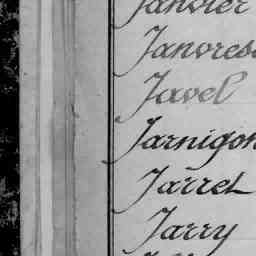 Janvier
Janvres
Javel
Jarnigon
Jarret
Jarry